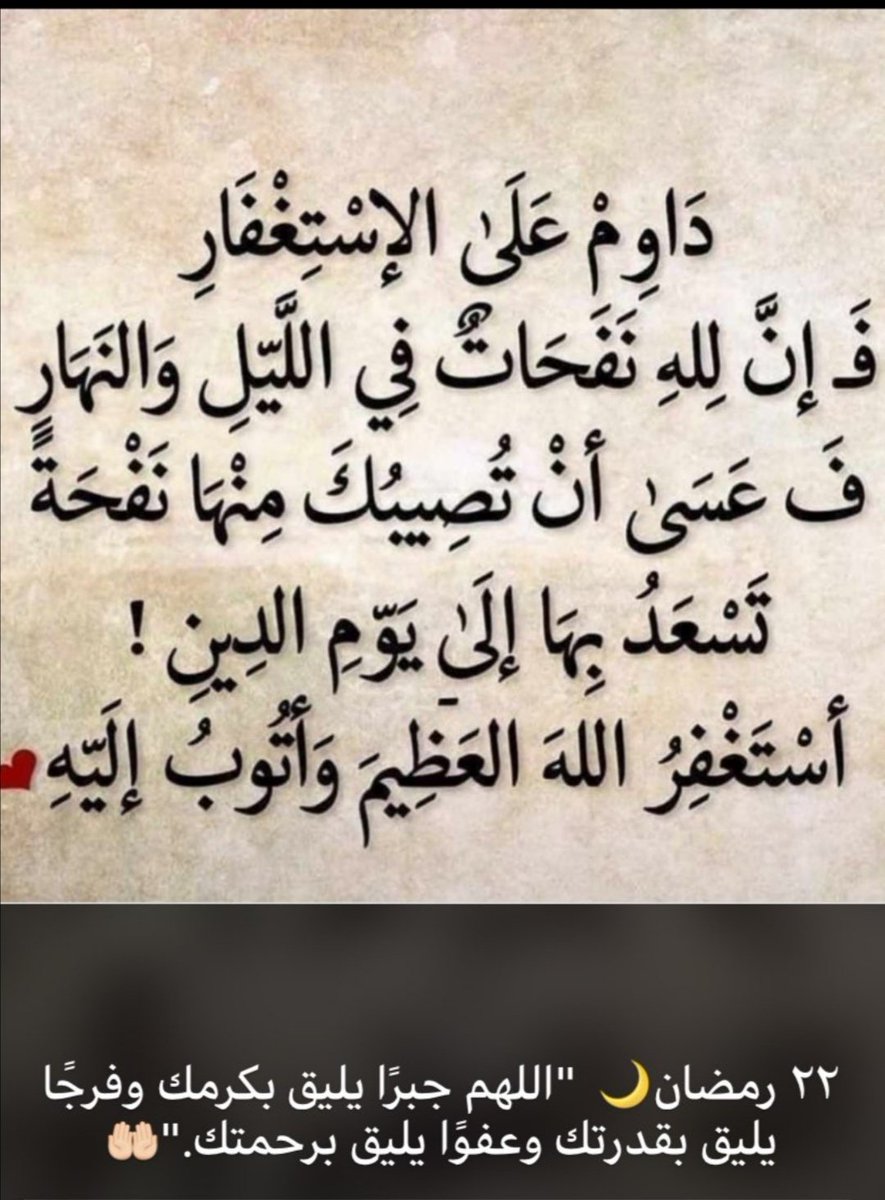 دَاوِمْ عَلَىٰ الإسْتِغْفَارِ
فَـ إنَّ لِلهِ نَفَحَاتٌ فِي اللَّيّلِ وَالنَهَارٍ
فَ عَسَىٰ أنْ تُصِيبُكَ مِنْهَا نَفْحَةً
تَسْعَدُ بِهَا إلَىٰ يَوّمِ الدِينِ !
أسْتَغْفِرُ اللهَ العَظِيمَ وَأتُوبُ إلَيّهِ❤
٢٢ رمضان🌙 "اللهم جبرًا يليق بكرمك وفرجًا
يليق بقدرتك وعفوًا يليق برحمتك."🤲🏻